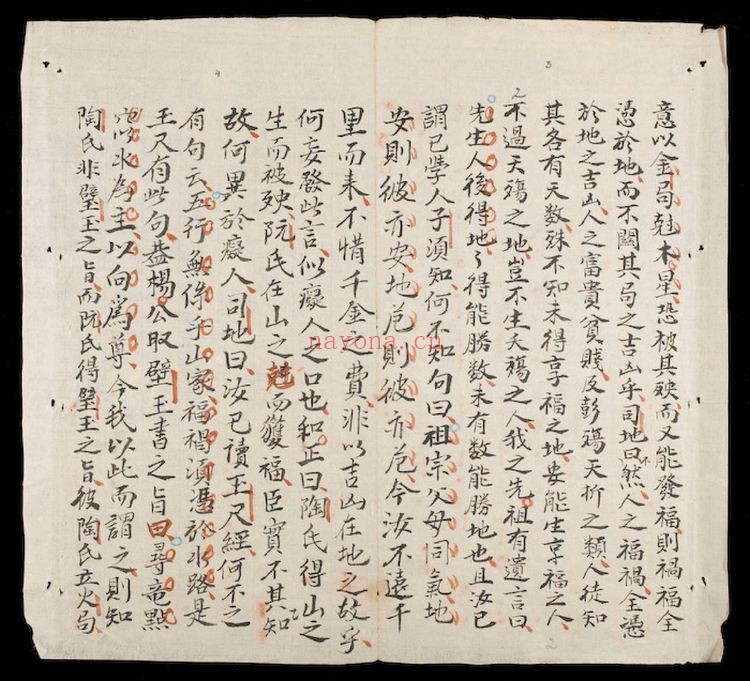 意以金局尅木星恐被其殃而又能發福則禍福全
憑於地而不關其局之吉凶乎司地曰不然人之福禍全憑
於地之吉凶人之富貴貧賤及彭殤夭折之類人徒知
其各有天數殊不知未得享福之地安能生享福之人
不過夭殤之地豈不生夭殤之人我之先祖有遺言曰
先生人後得地々得能勝數未有数能勝地也且汝已
謂已學人子須知何不知句曰祖宗父母同氣地
安則彼亦安地危則彼亦危今汝不遠千
里而来不惜千金之費非以吉凶在地之故乎
何妄發此言似癡人之口也和正曰陶氏得山之
生而被殃阮氏在山之尅而獲福臣實不知其
故何異於癡人司地曰汝已讀玉尺經何不之
有句云五行無係乎山家福禍須憑於水路是
玉尺有此句盖楊公取璧玉書之旨曰尋竜點
穴以水為主以向爲尊今我以此而謂之則知
陶氏非璧玉之旨而阮氏得璧玉之旨彼陶氏立火局
nayona.cn
4
3
2
2